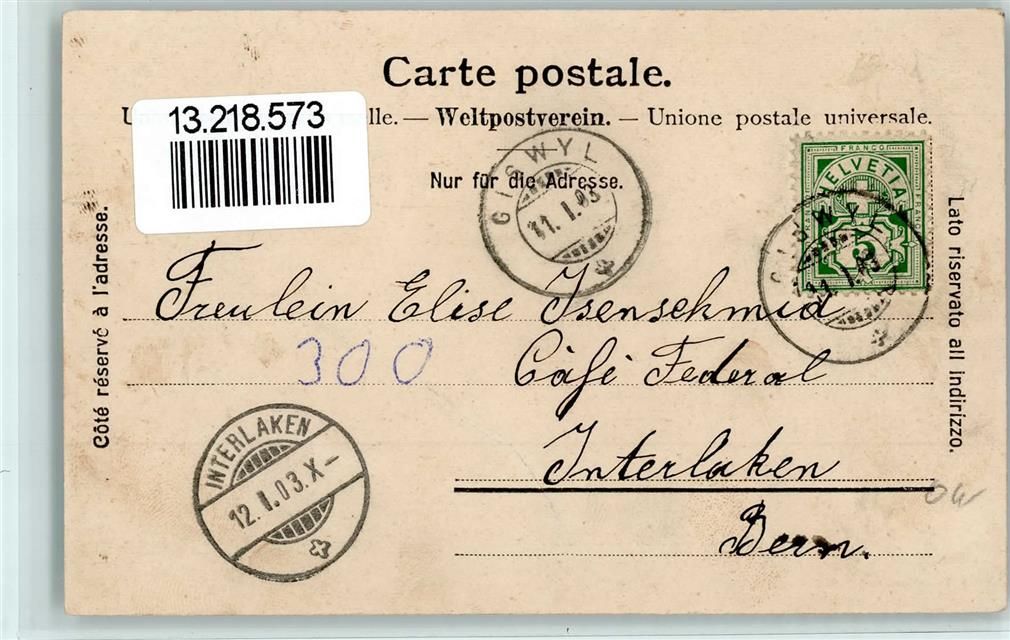 Carte postale.
13.218.573
lle. — Weltpostverein. — Unione postale universale.
Nur für die Adresse.
Côté réservé à l'adresse.
Lato riservato all indirizzo.
GISWYL
11.I.03
FRANCO
HELVETIA
5
GISWYL
11.I.03
Freulein Elise Isenschmid
300
Càfé Federal
Interlaken
Bern.
INTERLAKEN
12.I.03.X–
OW